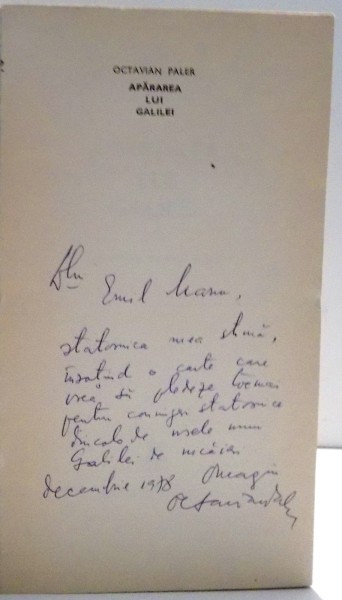 OCTAVIAN PALER
APĂRAREA
LUI
GALILEI
Dlui
Emil Manu,
statornica mea stimă,
însoțind o carte care
vrea să pledeze tocmai
pentru convingeri statornice
dincolo de
Galilei de
decembrie 1978
Octavian Paler